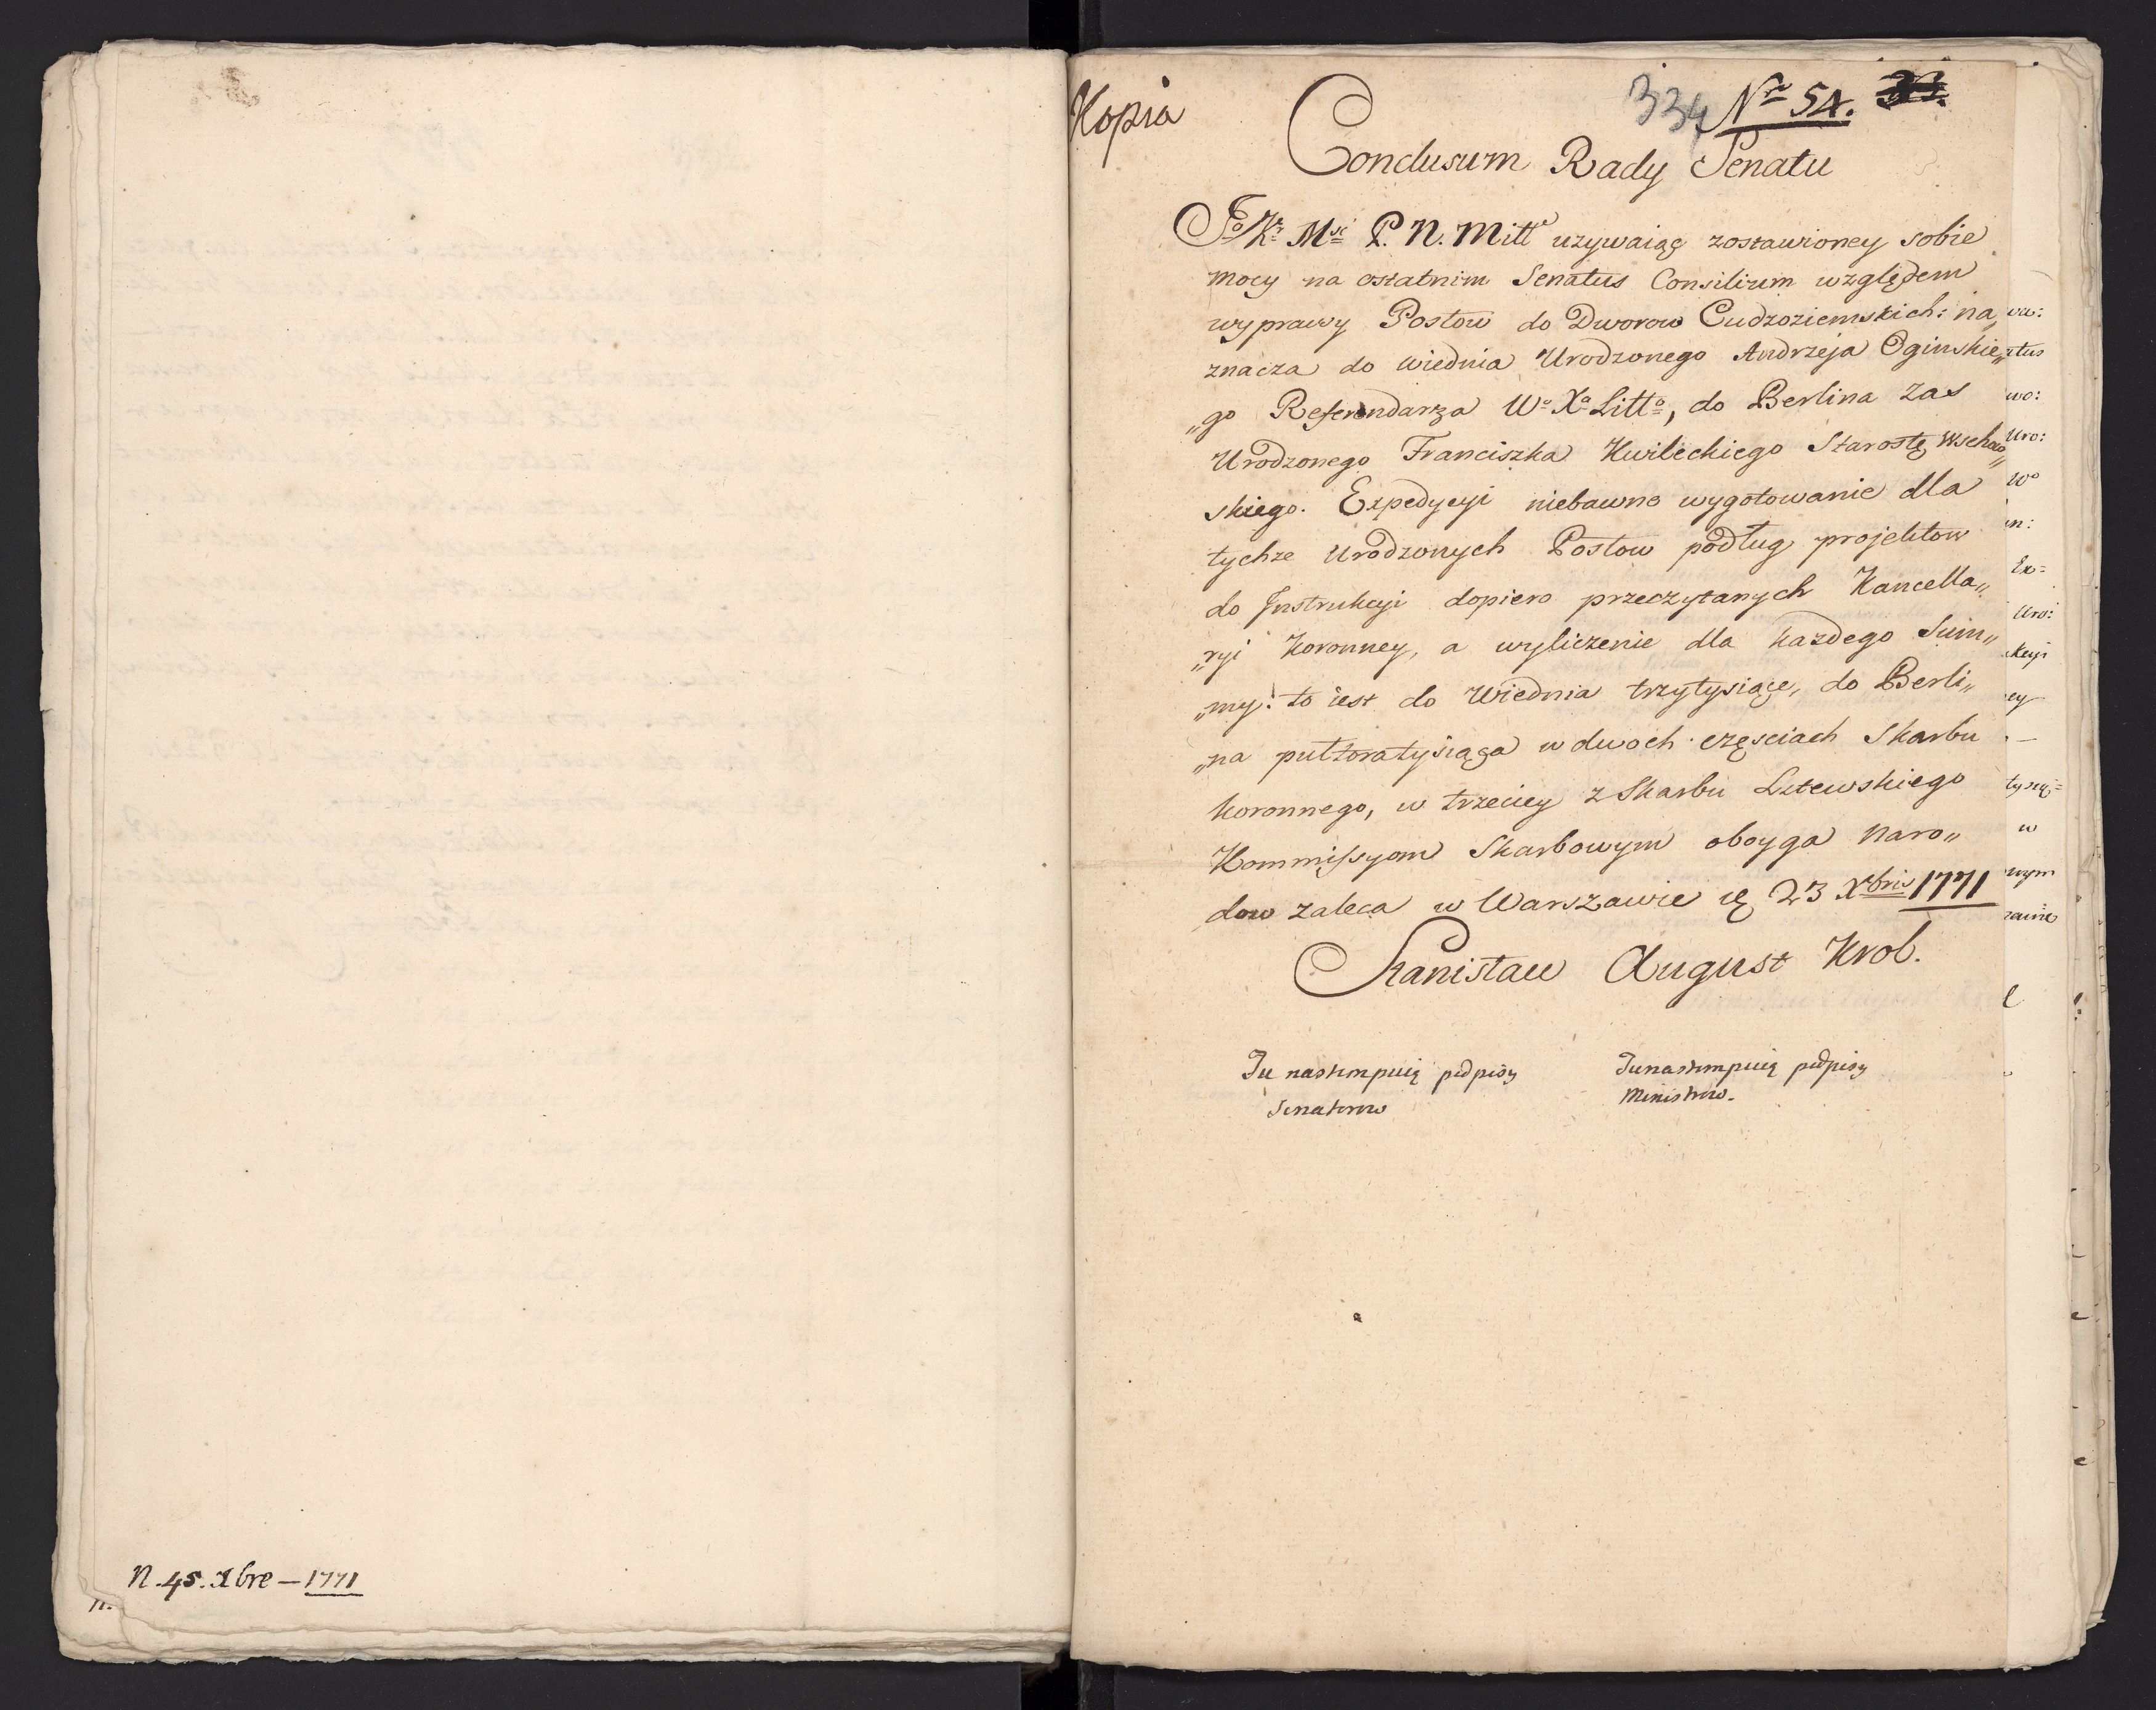 N. 45. Xbre – 1771
Kopia
334 Nro 54.
Conclusum Rady Senatu
Jo Kr Mść P. N. Miłł uzywaiąc zostawioney sobie
mocy na ostatnim Senatus Consilium względem
wyprawy Posłow do Dworow Cudzoziemskich: na„
znacza do Wiednia Urodzonego Andrzeja Oginskie„
„go Referendarza Wo Xa Litto, do Berlina zas
Urodzonego Franciszka Kwileckiego Starostę Wschow„
skiego. Expedycyi niebawne wygotowanie dla
tychze Urodzonych Posłow podług projektow
do Jnstrukcyi dopiero przeczytanych Kancella„
„ryi Koronney, a wyliczenie dla kazdego Sum„
„my: to iest do Wiednia trzytysiące, do Berli„
„na pułtoratysiąca w dwoch częsciach Skarbu
Koronnego, w trzeciey z Skarbu Litewskiego
Kommissyom Skarbowym oboyga Naro„
dow zaleca w Warszawie 23 Xbris 1771
Stanisław August Krol.
Tu nastempuią podpisy
Senatorow
Tu nastempuią podpisy
Ministrow.